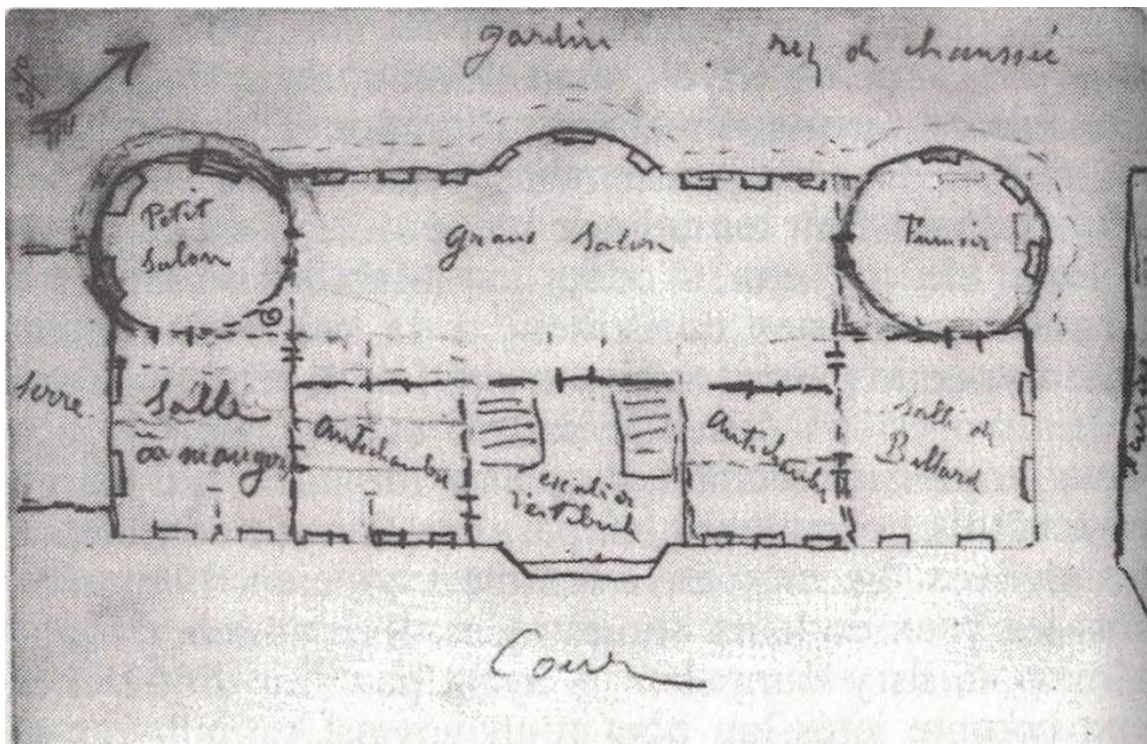 gardin
rez de chaussée
Petit
Salon
grand Salon
Fumoir
Serre
Salle
à manger
Antichambre
escalier
vestibule
Antichambre
Salle de
Billard
Cour